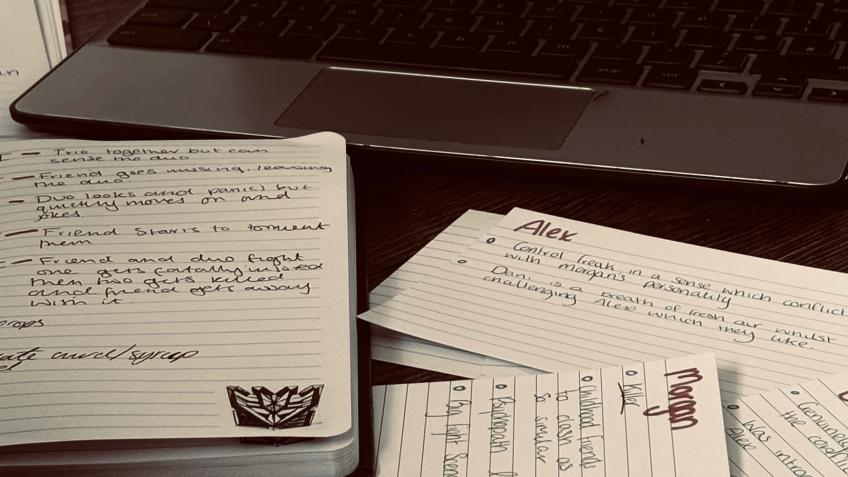 Trio together but can
sense the duo
Friend goes missing, leaving
the duo
Duo looks and panics but
quickly moves on and
jokes
Friend starts to torment
them
Friend and duo fight
one gets fatally injured
then two gets killed
and friend gets away
with it
props
syrup
Alex
Control freak in a sense which conflict
with Morgan's personality
Dani is a breath of fresh air whilst
challenging Alex which they like.
Morgan
Killer
Childhood friends
to clash as
so similar
Psychopath
Big fight scene
Genuinely
the
Was intro
Alex